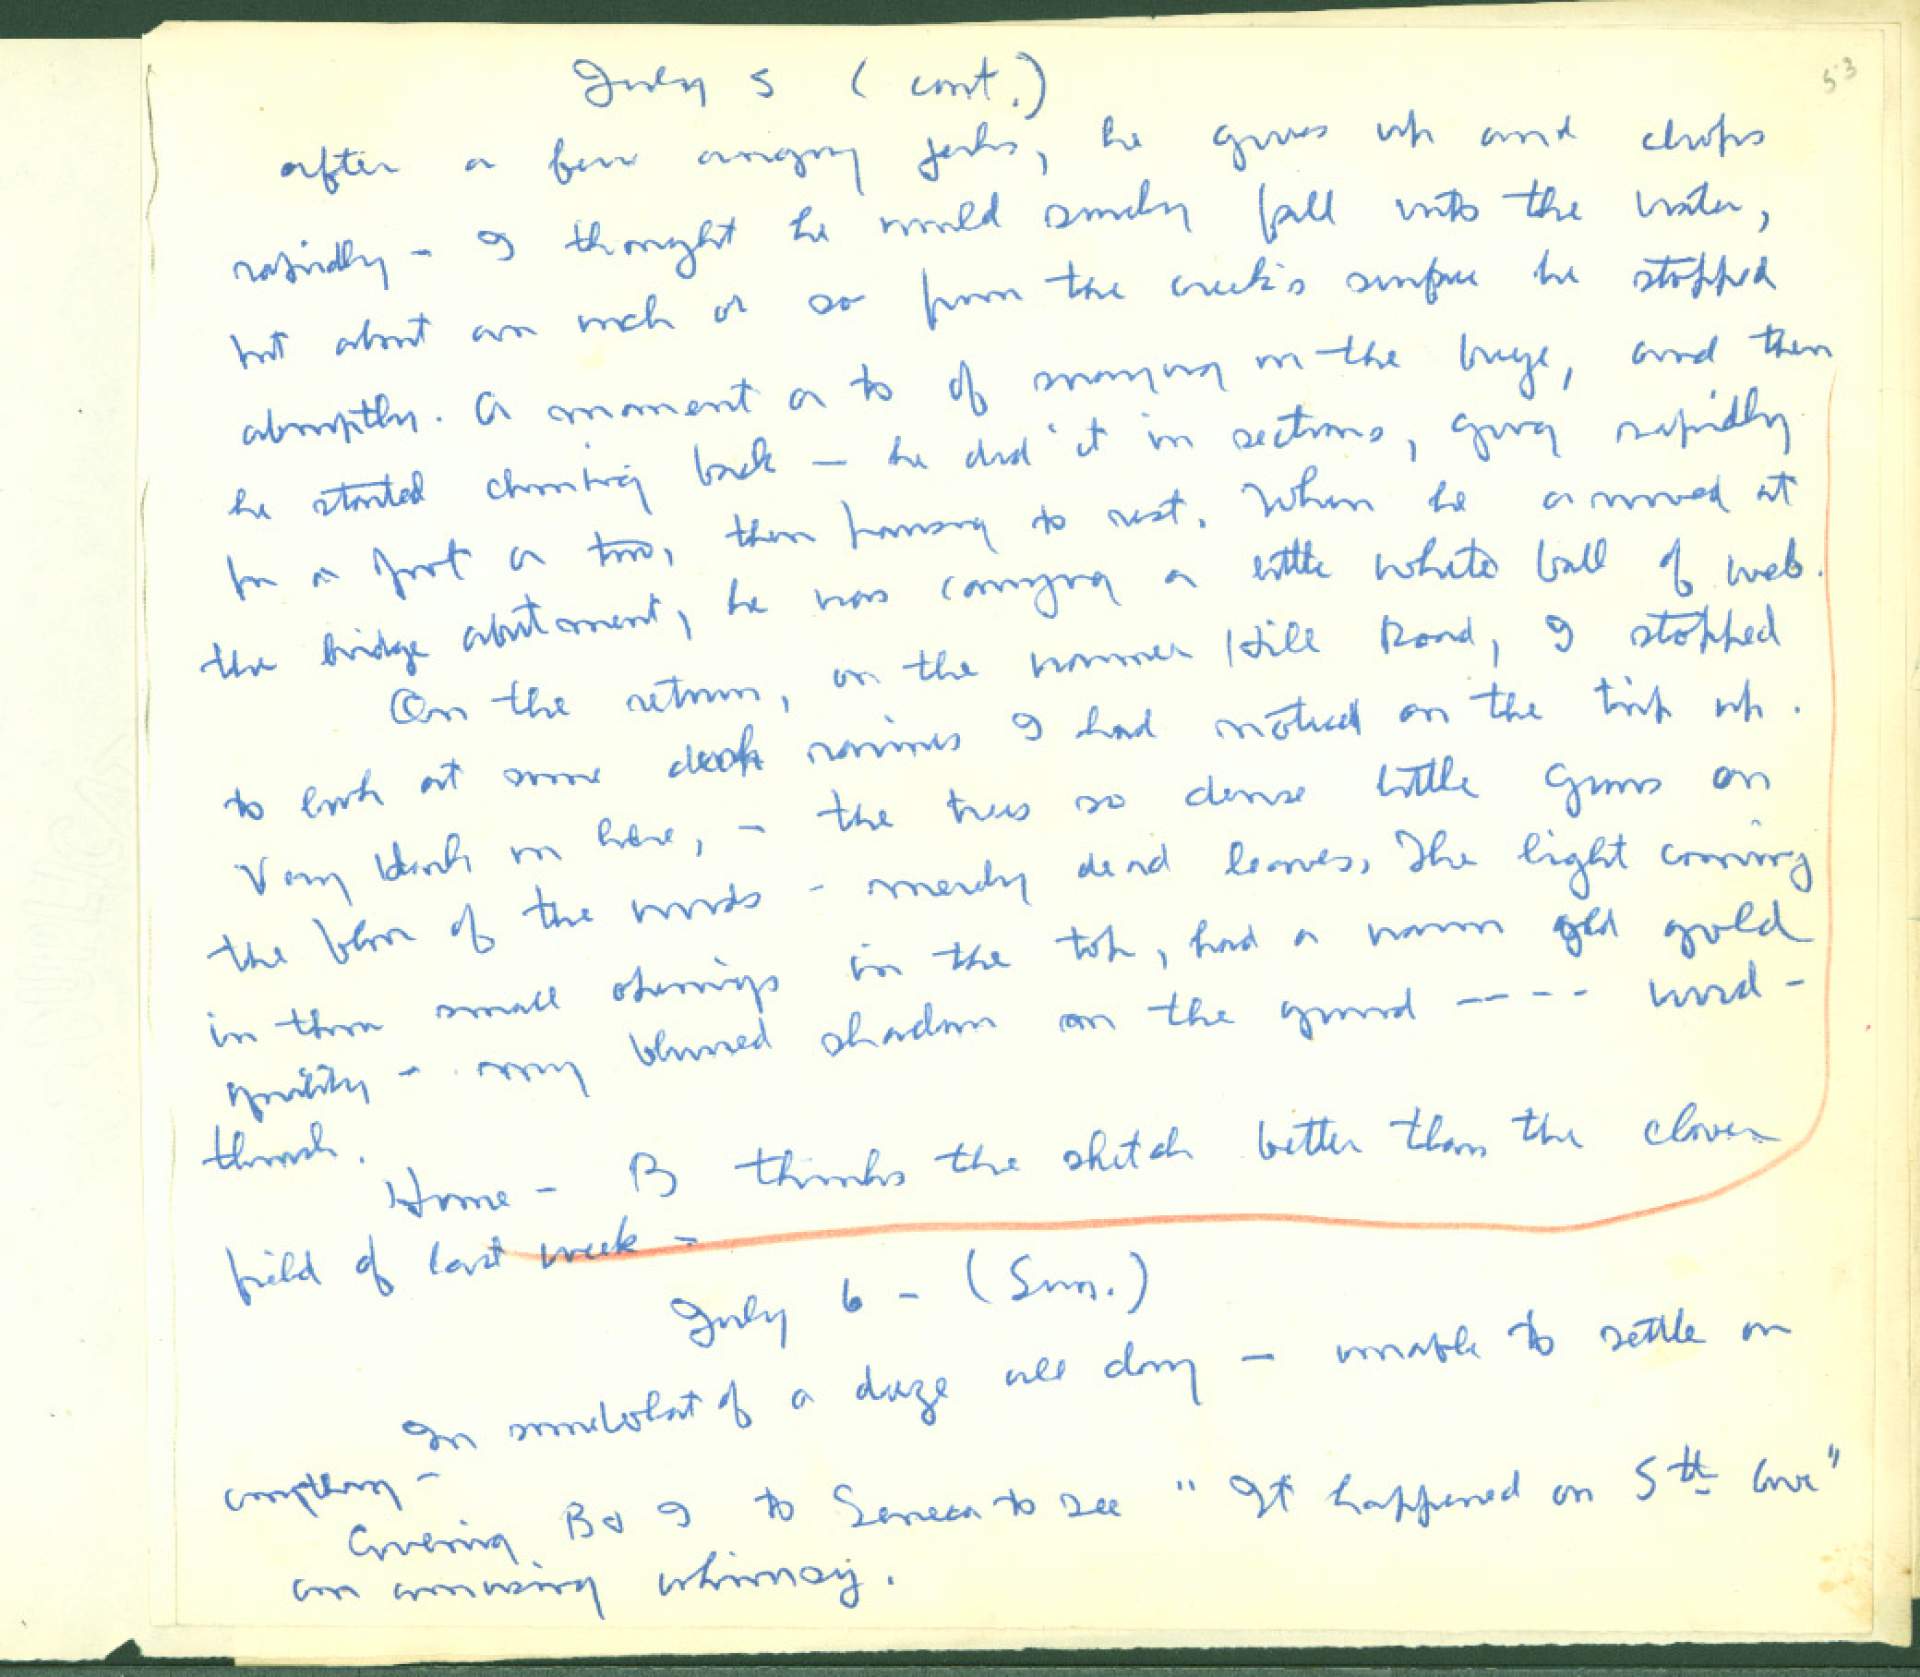 53
July 5 (cont.)
after a few angry jerks, he gives up and drops
rapidly - I thought he would surely fall into the water,
but about an inch or so from the creek's surface he stopped
abruptly. A moment or to of swaying in the breeze, and then
he started climbing back - he did it in sections, going rapidly
for a foot or two, then pausing to rest. When he arrived at
the bridge abutment, he was carrying a little white ball of web.
On the return, on the Hill Road, I stopped
to look at some dark ravines I had noticed on the trip up.
Very dark in here, - the trees so dense little grows on
the floor of the woods - merely dead leaves. The light coming
in thru small openings in the top, had a warm gold
quality - my blurred shadow on the ground ---- wood-
thrush.
Home - B thinks the sketch better than the clover
field of last week -
July 6 - (Sun.)
In somewhat of a daze all day - unable to settle on
anything -
Evening B & I to Seneca to see "It happened on 5th Ave"
an amusing whimsy.